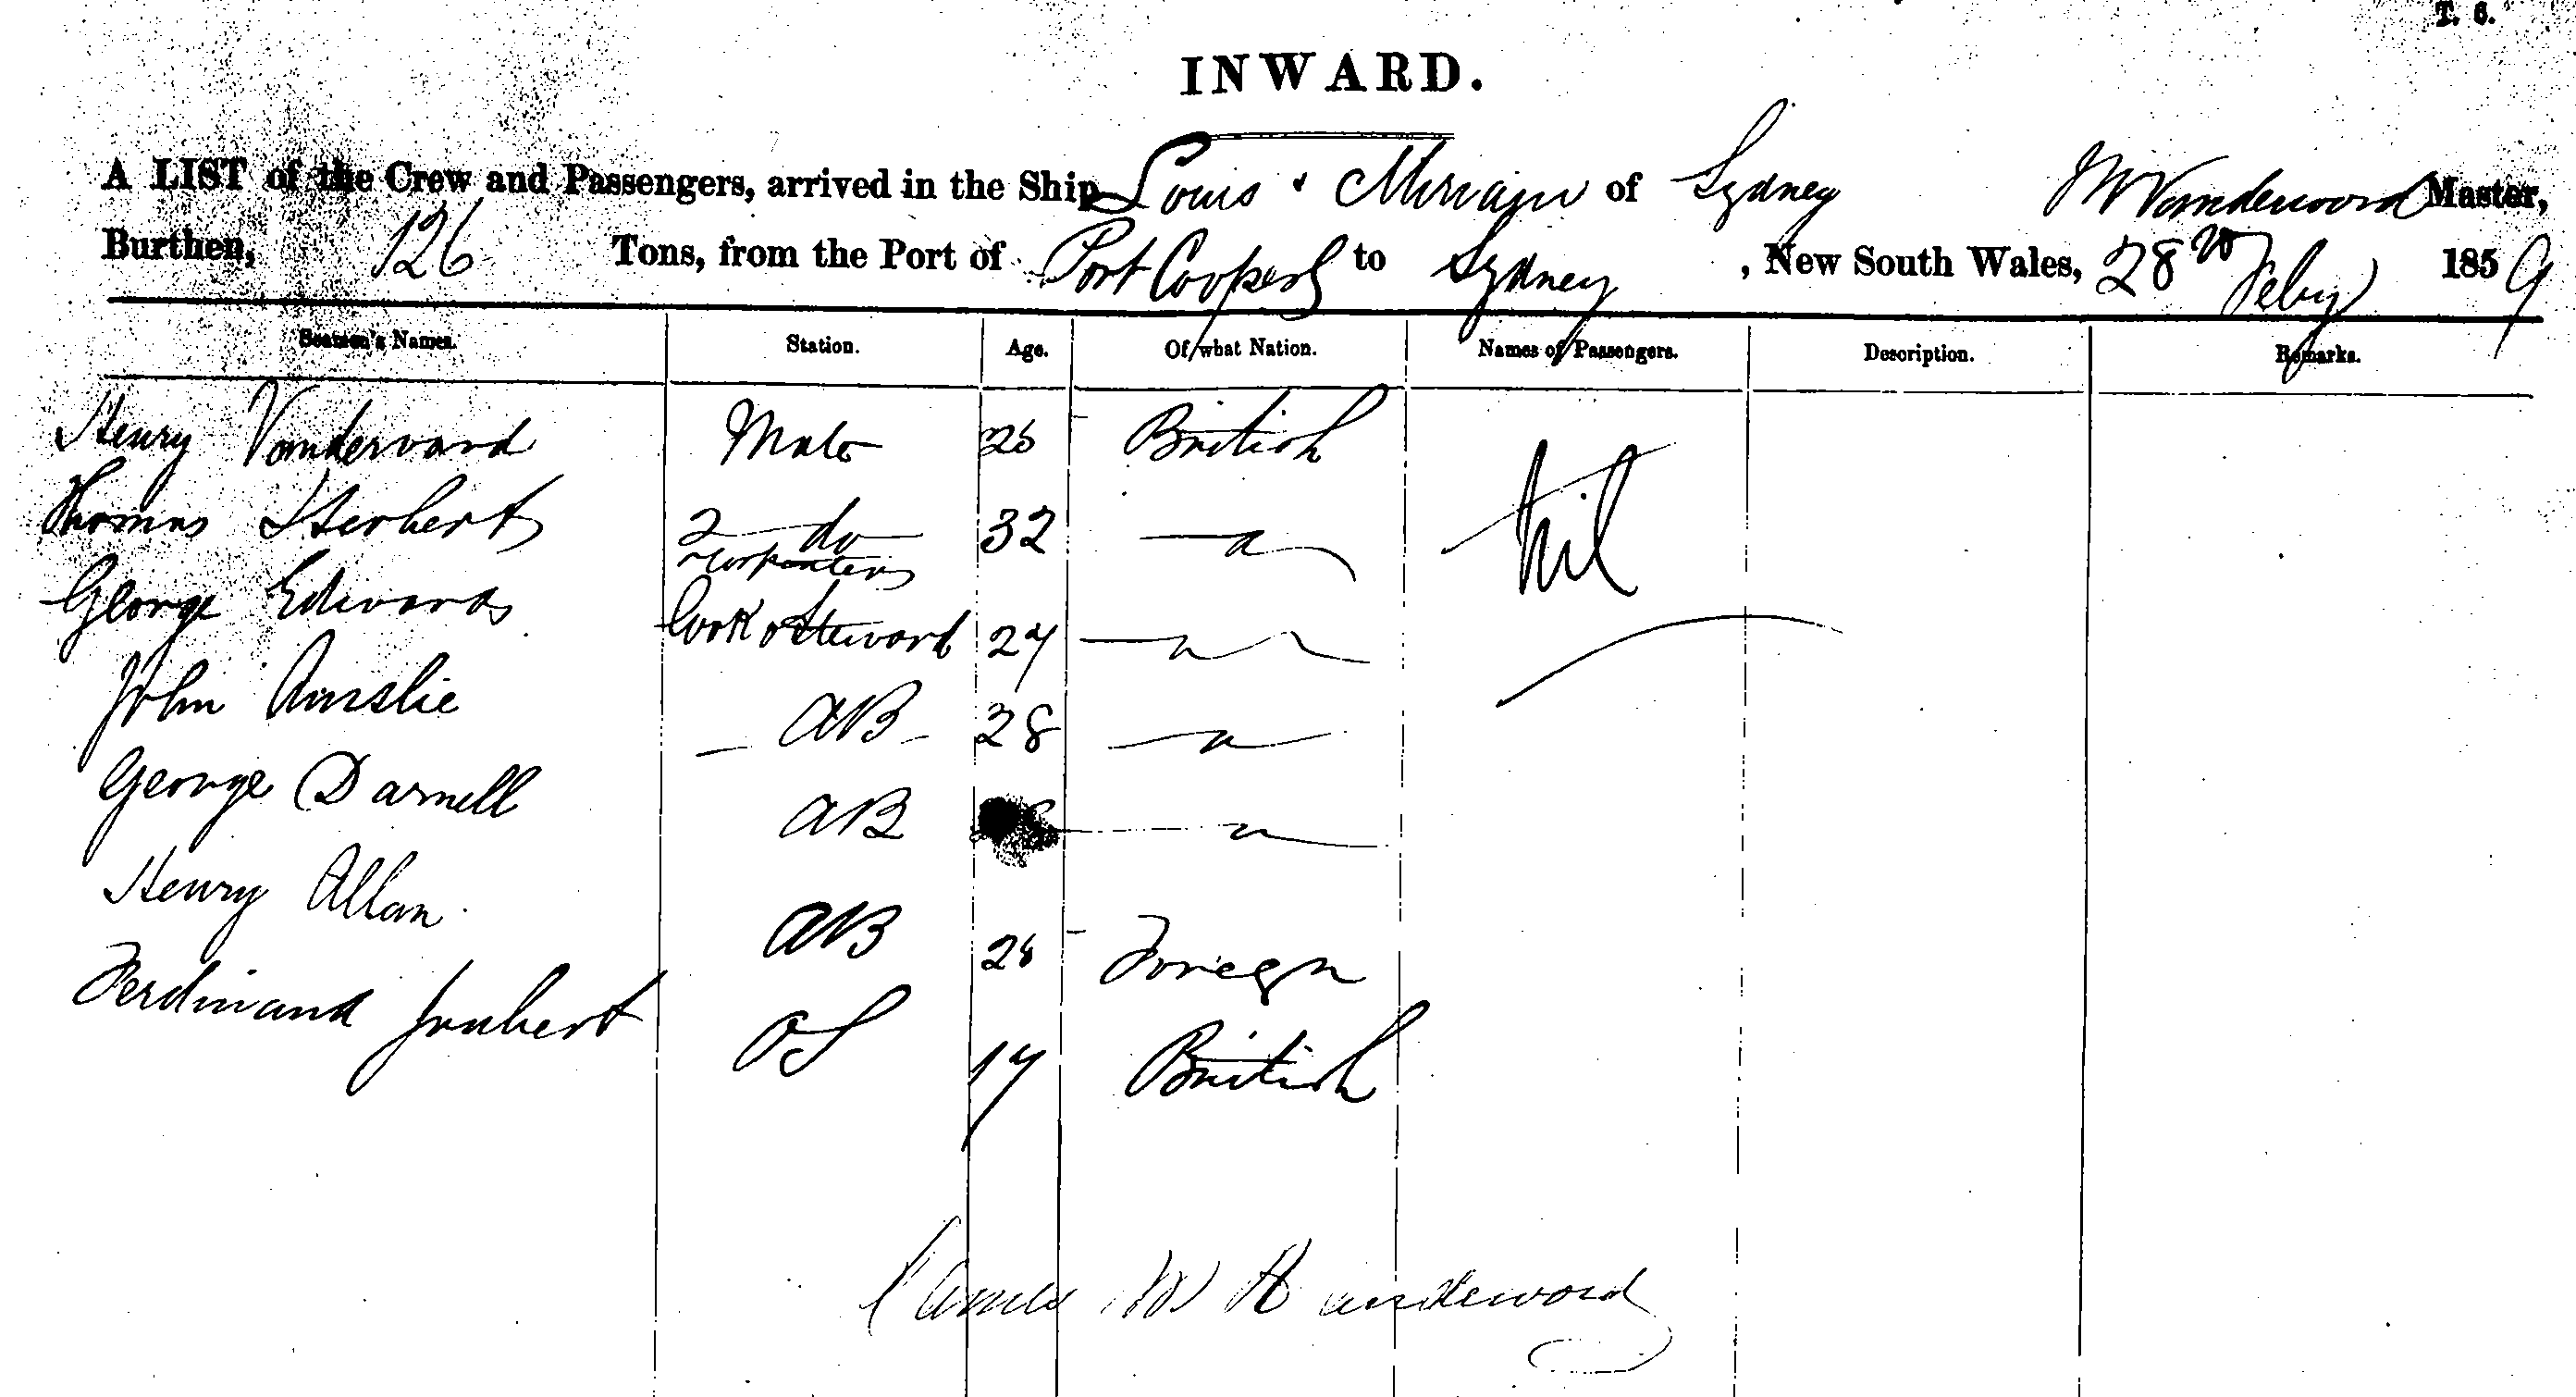 T. 6.
INWARD.
A LIST of the Crew and Passengers, arrived in the Ship Louis & Miriam of Sydney Master,
Burthen, 126 Tons, from the Port of Port Cooper to Sydney, New South Wales, 28th Feby 1859
Seamen's Names. Station. Age. Of what Nation. Names of Passengers. Description. Remarks.
Henry Vandervard Mate British nil
Thomas Herbert 2 do 32
carpenter
George Edwards Cook & Steward 27
John Ainslie AB 28
George Darnell AB
Henry Allan AB Foreign
Ferdinand Joubert OS 17 British
James W